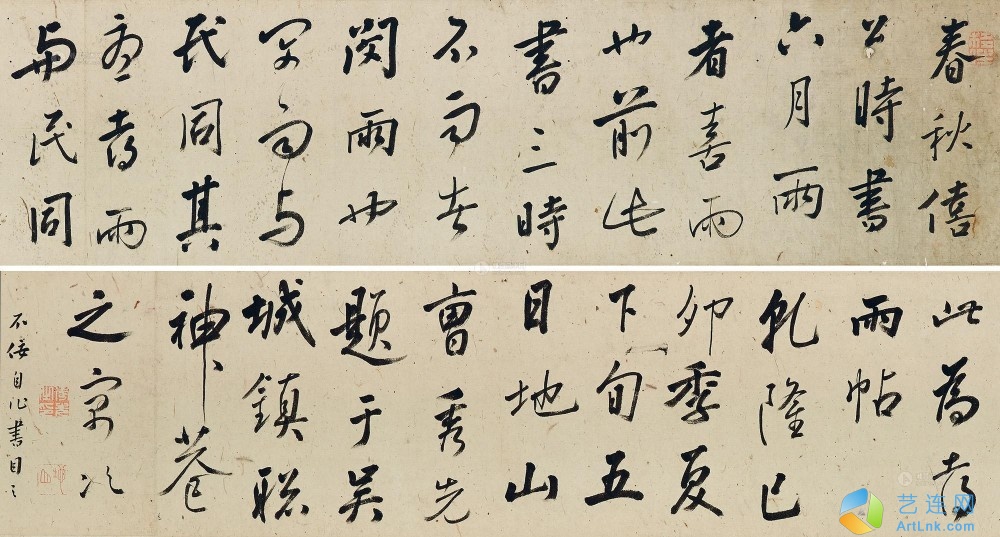 春秋僖
公時書
六月雨
者喜雨
也前此
書三時
不雨者
閔雨也
閔雨与
民同其
憂喜雨
與民同
此為喜
雨帖
乾隆己
卯季夏
下旬五
日地山
曹秀先
題于吴
城鎮聡
神菴
之寓次
不佞自
艺连网
ArtLnk.com